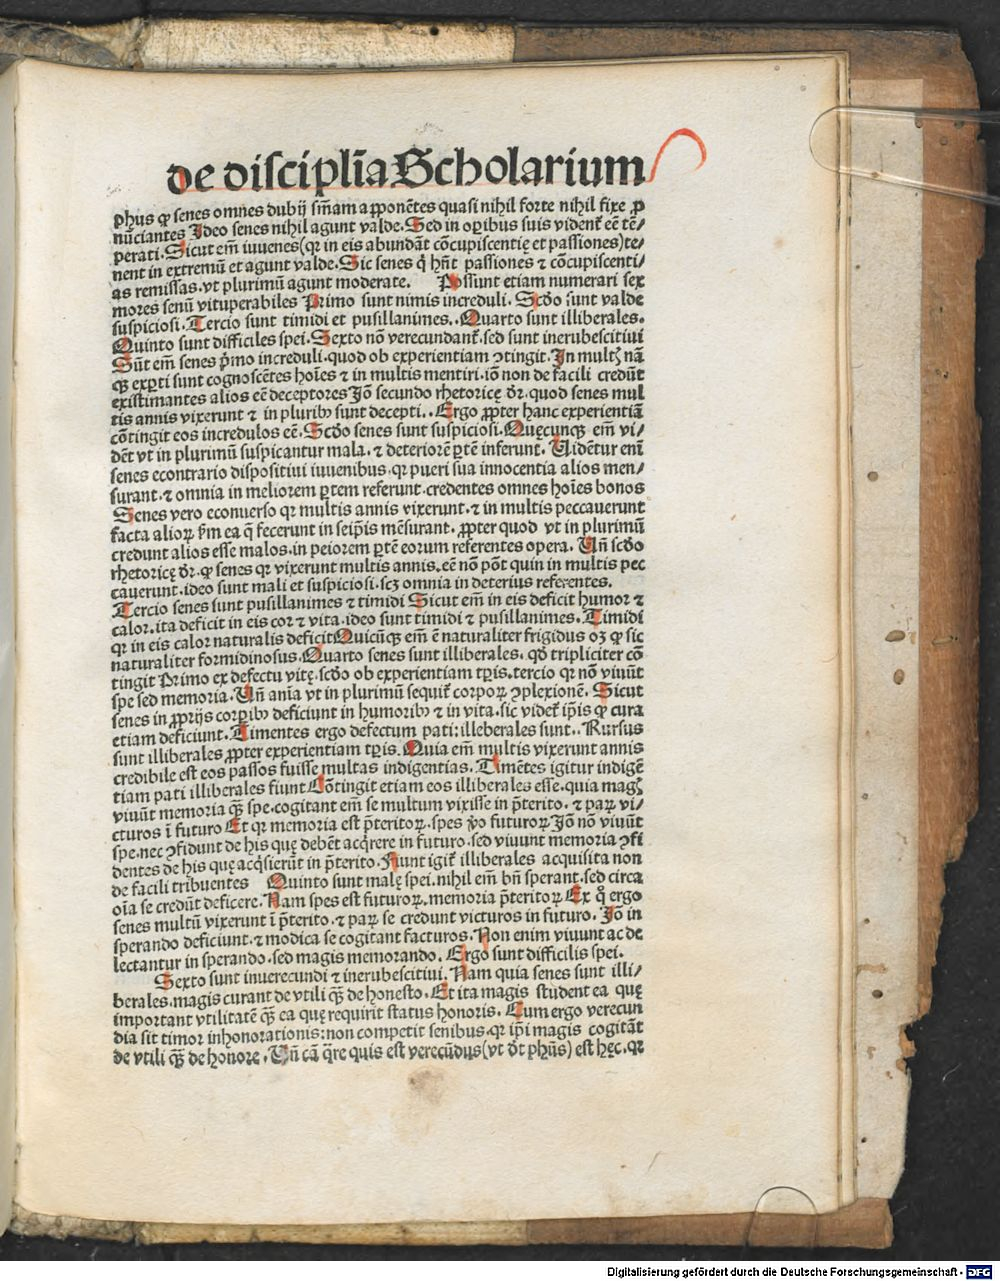 de disciplīa Scholarium
phus ꝙ senes omnes dubij sm̄am apponētes quasi nihil forte nihil fixe ꝓ
nūciantes Ideo senes nihil agunt valde. Sed in oꝑibus suis vident̄ eē tē/
perati. Sicut em̄ iuuenes (qr in eis abundāt cōcupiscentię et passiones) te/
nent in extremū et agunt valde. Sic senes q̄ hn̄t passiones ⁊ cōcupiscenti/
as remissas. vt plurimū agunt moderate. Possunt etiam numerari sex
mores senū vituperabiles Primo sunt nimis increduli. Scd̄o sunt valde
suspiciosi. Tercio sunt timidi et pusillanimes.. Quarto sunt illiberales.
Quinto sunt difficiles spei. Sexto nō verecundant̄. sed sunt inerubescitiui
Sūt em̄ senes p̄mo increduli. quod ob experientiam ꝯtingit. In multꝭ nā
qꝫ exꝑti sunt cognoscētes hoīes ⁊ in multis mentiri. iō non de facili credūt
existimantes alios eē deceptores Iō secundo rhetoricę dr̄. quod senes mul
tis annis vixerunt ⁊ in pluribꝰ sunt decepti.. Ergo ꝓpter hanc experientiā
cōtingit eos incredulos eē. Scd̄o senes sunt suspiciosi. Quęcunqꝫ em̄ vi/
dēt vt in plurimū suspicantur mala. ⁊ deteriorē ꝑtē inferunt. Uidētur enī
senes econtrario dispositiui iuuenibus. qr pueri sua innocentia alios men/
surant. ⁊ omnia in meliorem ꝑtem referunt. credentes omnes hoīes bonos
Senes vero econuerso qr multis annis vixerunt. ⁊ in multis peccauerunt
facta alioꝝ s̄m ea q̄ fecerunt in seip̄is mēsurant. ꝓpter quod vt in plurimū
credunt alios esse malos. in peiorem ꝑtē eorum referentes opera. Un̄ scd̄o
rhetoricę dr̄. ꝙ senes qr vixerunt multis annis. eē nō pōt quin in multis pec
cauerunt. ideo sunt mali et suspiciosi. scꝫ omnia in deterius referentes.
Tercio senes sunt pusillanimes ⁊ timidi Sicut em̄ in eis deficit humor ⁊
calor. ita deficit in eis cor ⁊ vita. ideo sunt timidi ⁊ pusillanimes. Timidi
qr in eis calor naturalis deficit Quicūqꝫ em̄ ē naturaliter frigidus oꝫ ꝙ sic
naturaliter formidinosus. Quarto senes sunt illiberales. qd̄ tripliciter cō
tingit Primo ex defectu vitę. scd̄o ob experientiam tꝑis. tercio qr nō viuūt
spe sed memoria. Un̄ anīa vt in plurimū sequit̄ corpoꝝ ꝯplexionē. Sicut
senes in ꝓprijs corꝑibꝰ deficiunt in humoribꝰ ⁊ in vita. sic videt̄ ip̄is ꝙ cura
etiam deficiunt. Timentes ergo defectum pati: illeberales sunt.. Rursus
sunt illiberales ꝓpter experientiam tꝑis. Quia em̄ multis vixerunt annis
credibile est eos passos fuisse multas indigentias. Timētes igitur indigē
tiam pati illiberales fiunt Cōtingit etiam eos illiberales esse. quia magꝭ
viuūt memoria qꝫ̄ spe. cogitant em̄ se multum vixisse in p̄terito. ⁊ paꝝ vi/
cturos ī futuro Et qr memoria est p̄teritoꝝ. spes v̄o futuroꝝ Iō nō viuūt
spe. nec ꝯfidunt de his quę debēt acq̄rere in futuro. sed viuunt memoria ꝯfi
dentes de his quę acq̄sierūt in p̄terito. Fiunt igit̄ illiberales acquisita non
de facili tribuentes Quinto sunt malę spei. nihil em̄ bn̄ sperant. sed circa
oīa se credūt deficere. Nam spes est futuroꝝ. memoria p̄teritoꝝ Ex q̊ ergo
senes multū vixerunt ī p̄terito. ⁊ paꝝ se credunt victuros in futuro. Iō in
sperando deficiunt. ⁊ modica se cogitant facturos. Non enim viuunt ac de
lectantur in sperando. sed magis memorando. Ergo sunt difficilis spei.
Sexto sunt inuerecundi ⁊ inerubescitiui. Nam quia senes sunt illi/
berales. magis curant de vtili qꝫ̄ de honesto. Et ita magis student ea quę
important vtilitatē qꝫ̄ ea quę requirit status honoris. Cum ergo verecun
dia sit timor inhonorationis: non competit senibus. qr ip̄i magis cogitāt
de vtili qꝫ̄ de honore. Un̄ cā q̄re quis est verecūdus (vt dt̄ phūs) est hęc. qr